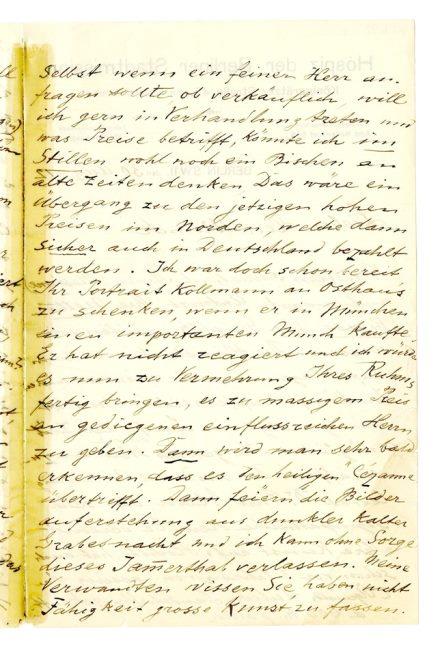 Selbst wenn ein feiner Herr an-
fragen sollte ob verkauflich, will
ich gern in Verhandlung treten und
was Preise betrifft, könnte ich im
Stillen wohl noch ein Bischen an
alte Zeiten denken Das wäre ein
Übergang zu den jetzigen hohen
Preisen im Norden, welche dann
Sicher auch in Deutschland bezahlt
werden. Ich war doch schon bereit
Ihr Portrait Kollmann an Osthaus
zu schenken, wenn er in München
einen importanten Munch kaufte.
Er hat nicht reagiert und ich würde
es nun zu Vermehrung Ihres Ruhms
fertig bringen, es zu massigem Preis
an gediegenen einflussreichen Herrn
zu geben. Dann wird man sehr bald
erkennen, dass es den heiligen Cézanne
übertrifft. Dann feiern die Bilder
auferstehung aus dunkler Kalter
Grabesnacht und ich kann ohne Sorge
dieses Jam̄erthal verlassen. Meine
Verwandten wissen Sie haben nicht
Fähigkeit grosse Kunst zu fassen.